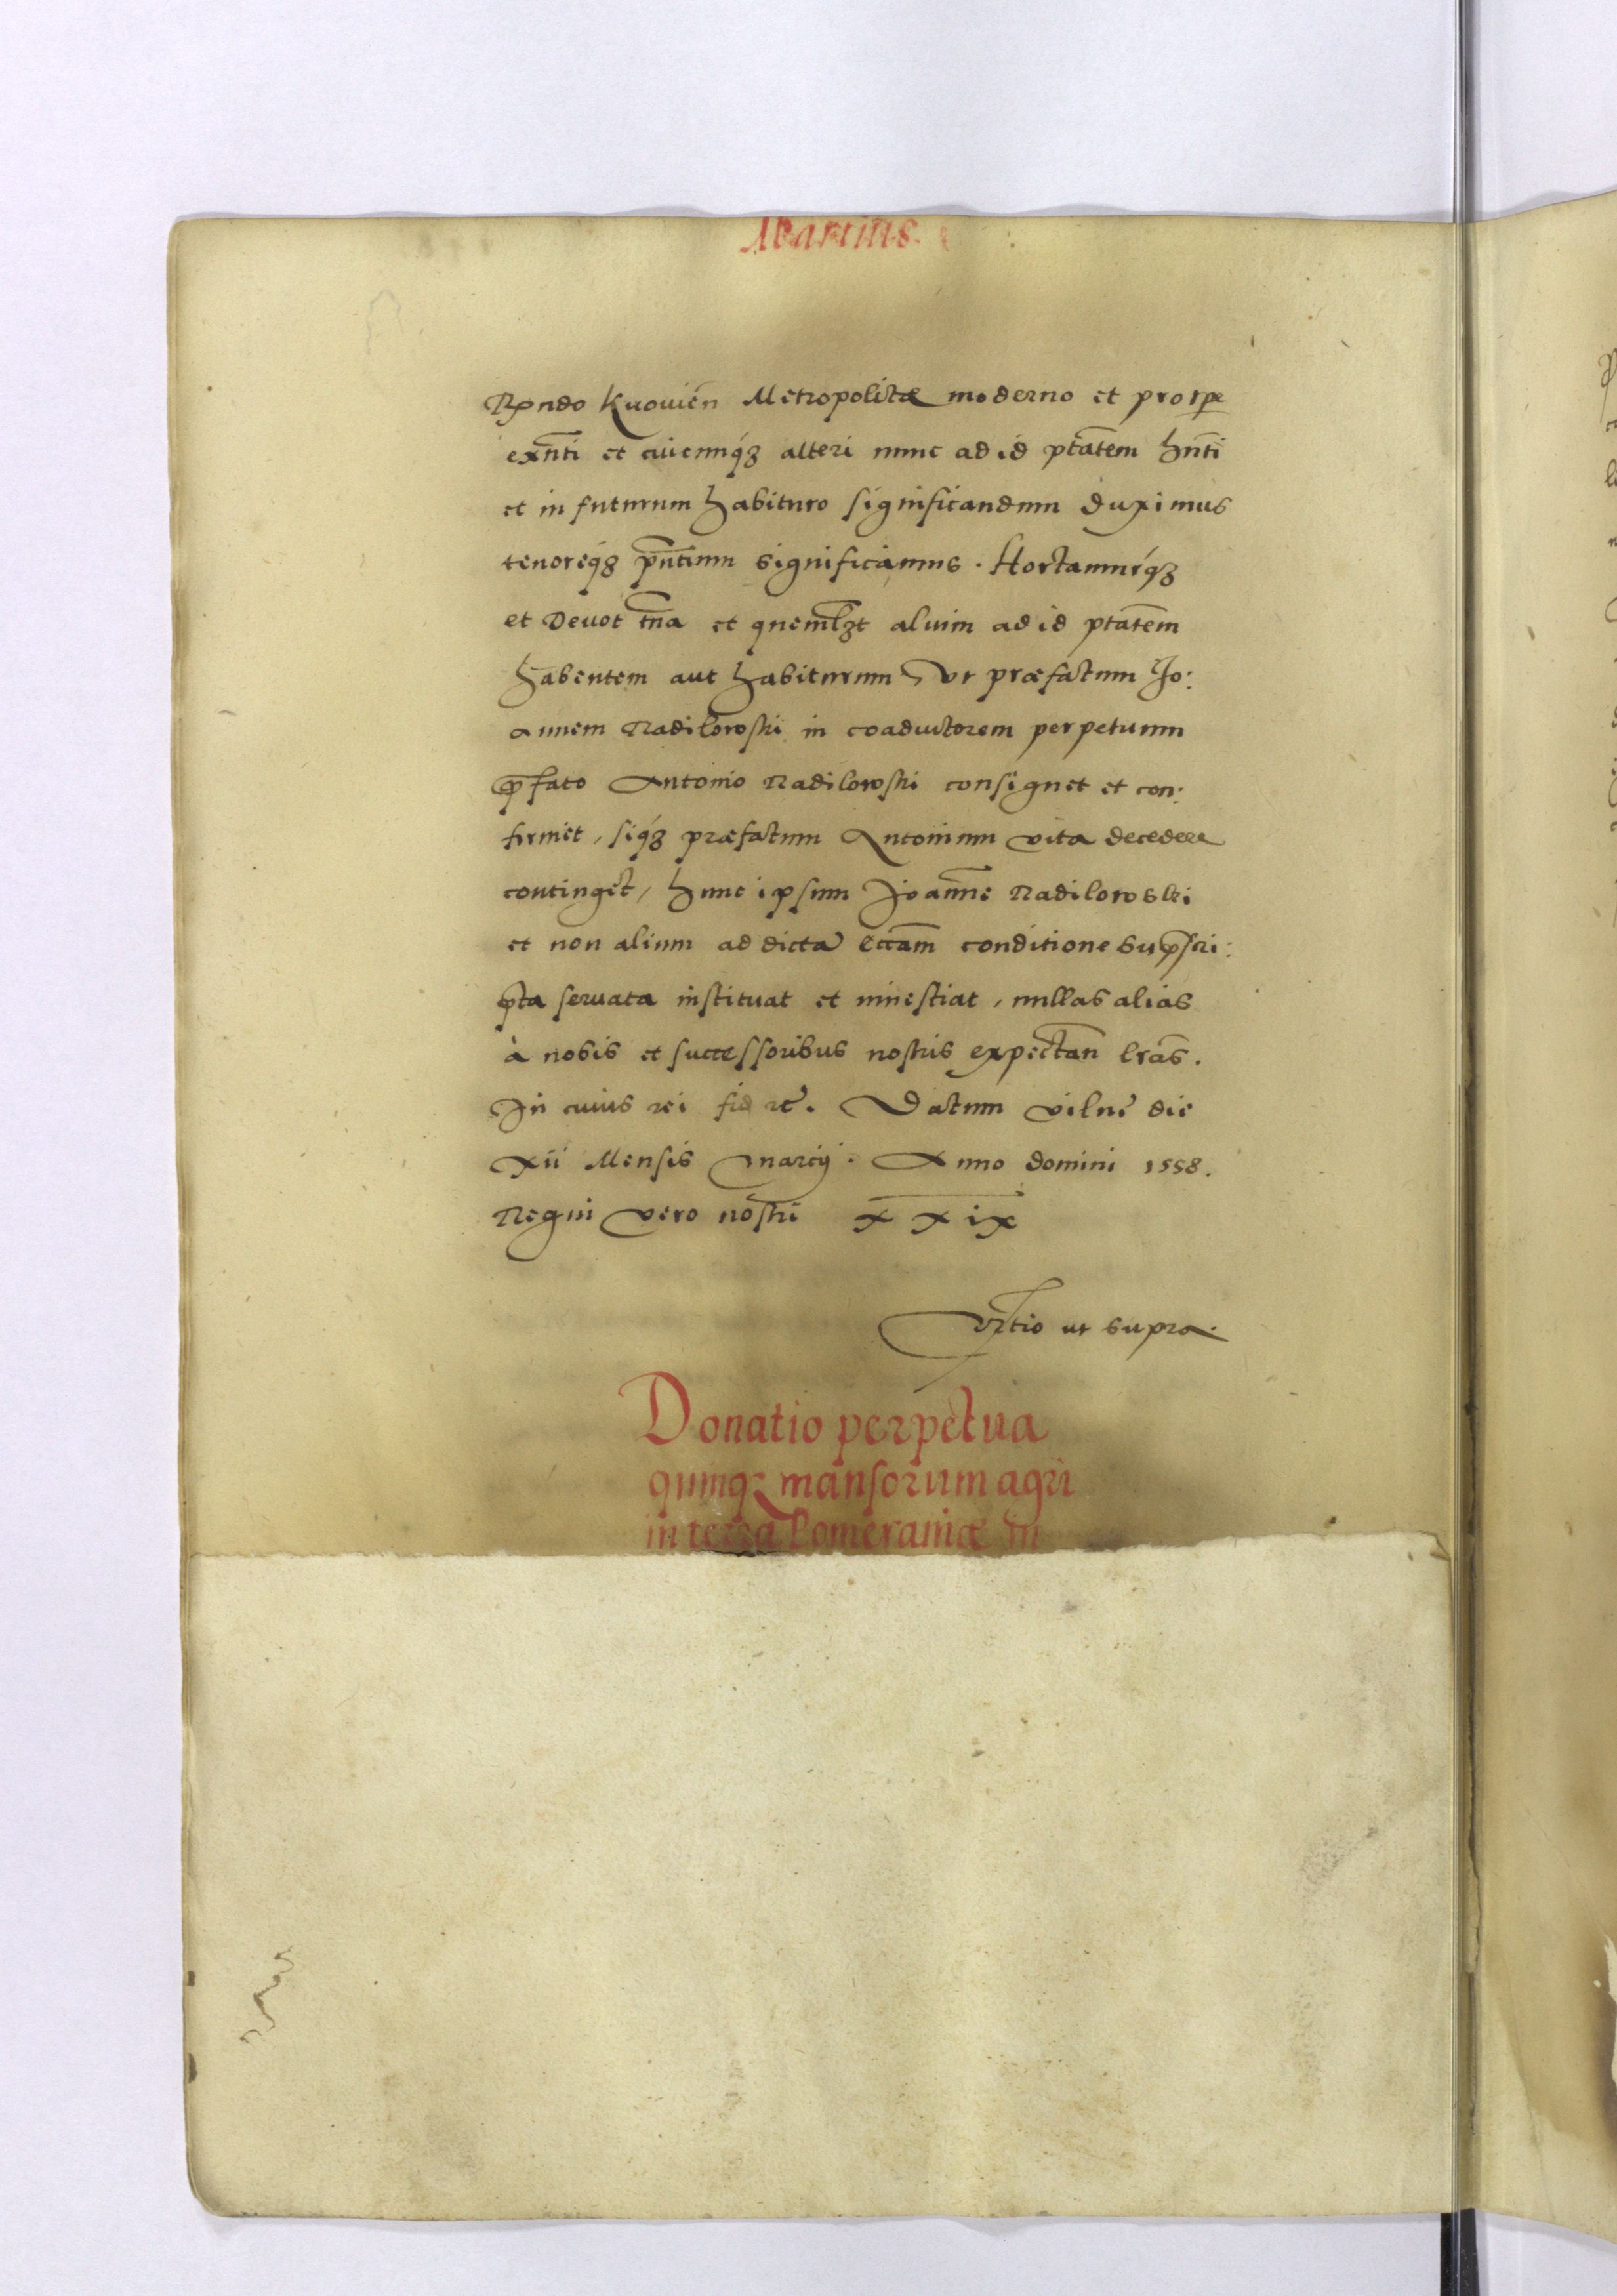 Martius.
Rondo Kyouien̄ Metropolitæ moderno et pro tpe
exn̄ti et cuicunq́ꝫ alteri nunc ad id ptātem hn̄ti
et in futurum habituro significandum duximus
tenoreq́ꝫ pn̄tium significamus. Hortamurq́ꝫ
et Deuot tn̄a et quemlꝫt alium ad id ptātem
habentem aut habiturum, vt præfatum Jo:
annem Radiloroski in coadiutorem perpetuum
p̄fato Antonio Radiloroski consignet et con:
firmet, siq́ꝫ præfatum Antonium vita decedere
continget, hunc ipsum Joann̄e Radiloroski
et non alium ad dictā Eccām conditione sup̄scri:
pta seruata instituat et inuestiat, nullas alias
à nobis et successoribus nostris expectan̄ lrās.
In cuius rei fid rc̄. Datum vilnē die
xii Mensis Marcij. Anno domini 1558.
Regni vero nostri xxix
ut supra.
Donatio perpetua
quinqꝫ mansorum agri
in terra Pomeraniæ in